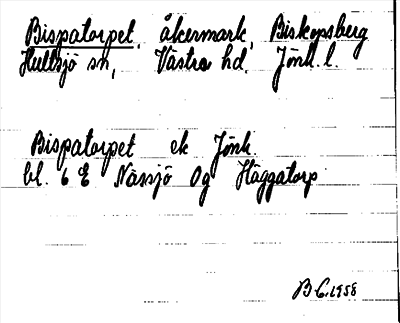 Bispatorpet, åkermark, Biskopsberg
Hultsjö sn, Västra hd, Jönk. l.
Bispatorpet ek Jönk.
bl. 6 E Nässjö Og Häggatorp
B C. 1958